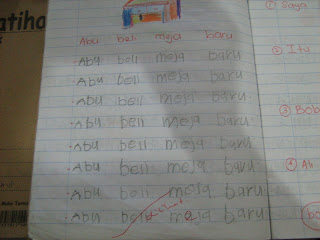 atiha
Abu beli meja baru
Abu beli meja baru
Abu beli moja baru
Abu beli meja baru
Abu beli meja baru
Abu beli meja baru
Abu beli meja baru
Abu beli meja baru
Abu beli meja baru
① Saya
② Itu
③ Bob
④ Ah